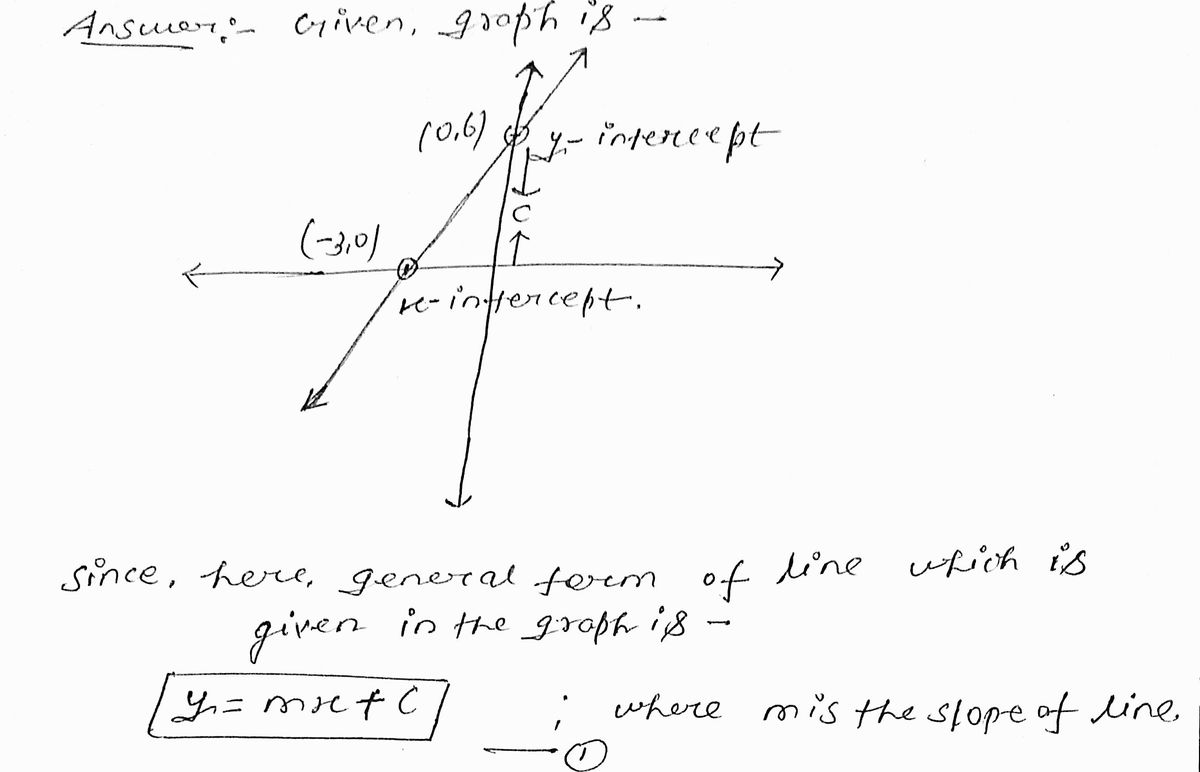 Answer:- Given, graph is -
(0,6) y-intercept
C
(-3,0)
x-intercept.
since, here, general form of line which is
given in the graph is -
y = mx + C ; where m is the slope of line.
①